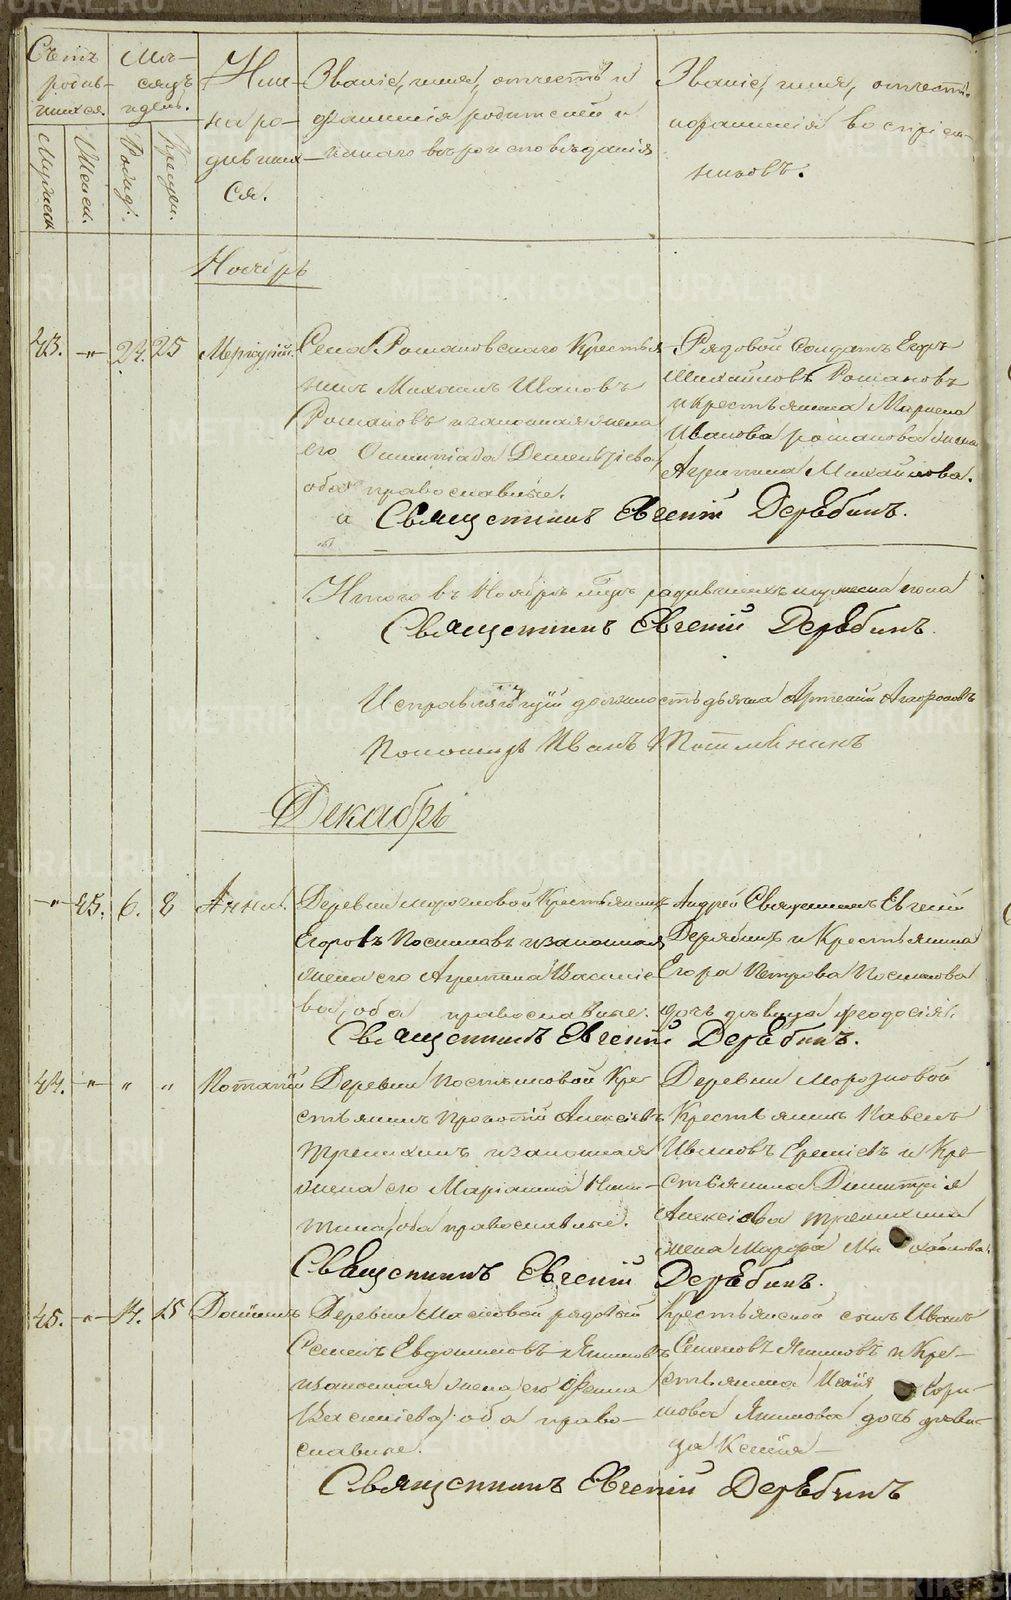 Счетъ родившихся.
Мѣсяцъ и день.
Имена родившихся.
Званіе, имя, отчество и фамилія родителей и какого вѣроисповѣданія
Званіе, имя, отчество и фамилія воспріемниковъ.
Мужеск.
Женск.
Рожд.
Крещен.
Ноябрь
43. -„- 24. 25 Меркурій.
Села Романовскаго Крестья-
нинъ Михаилъ Ивановъ
Романовъ и законная жена
его Олимпіада Дементьева,
оба православные.
Рядовой Солдатъ Егоръ
Михайловъ Романовъ
и крестьянина
Иванова Романова жена
Агрипина Михайлова.
Священникъ Евгеній Дерябинъ.
Итого въ Ноябрѣ мѣс. родившихся мужеска пола
Священникъ Евгеній Дерябинъ.
Исправляющій должность дьячка Артемій
Пономарь Иванъ
Декабрь
-„- 45. 6. 8 Анна.
Деревни Морозковой Крестьянинъ
Егоровъ Посниковъ и законная
жена его Агрипина Василье-
ва, оба православные.
Священникъ Евгеній
Дерябинъ и Крестьянина
Егора Петрова Посникова
дочь дѣвица Феодосія.
Священникъ Евгеній Дерябинъ.
44. „ „ „ Потапій
Деревни Кре-
стьянинъ Прокопій Алексѣевъ
и законная
жена его Маріанна Ники-
тина, оба православные.
Деревни Морозковой
Крестьянинъ Павелъ
Ивановъ и Кре-
стьянина Димитрія
Алексѣева
жена Марфа Михайлова.
Священникъ Евгеній Дерябинъ.
45. -„- 14. 15 Даніилъ
Деревни Масловой рядовый
Семенъ Евдокимовъ Якимовъ
и законная жена его Фекла
Васильева, оба право-
славные.
Крестьянской сынъ Иванъ
Семеновъ Якимовъ и Кре-
стьянина
Якимова дочь дѣви-
ца Ксенія
Священникъ Евгеній Дерябинъ
METRIKI.GASO-URAL.RU